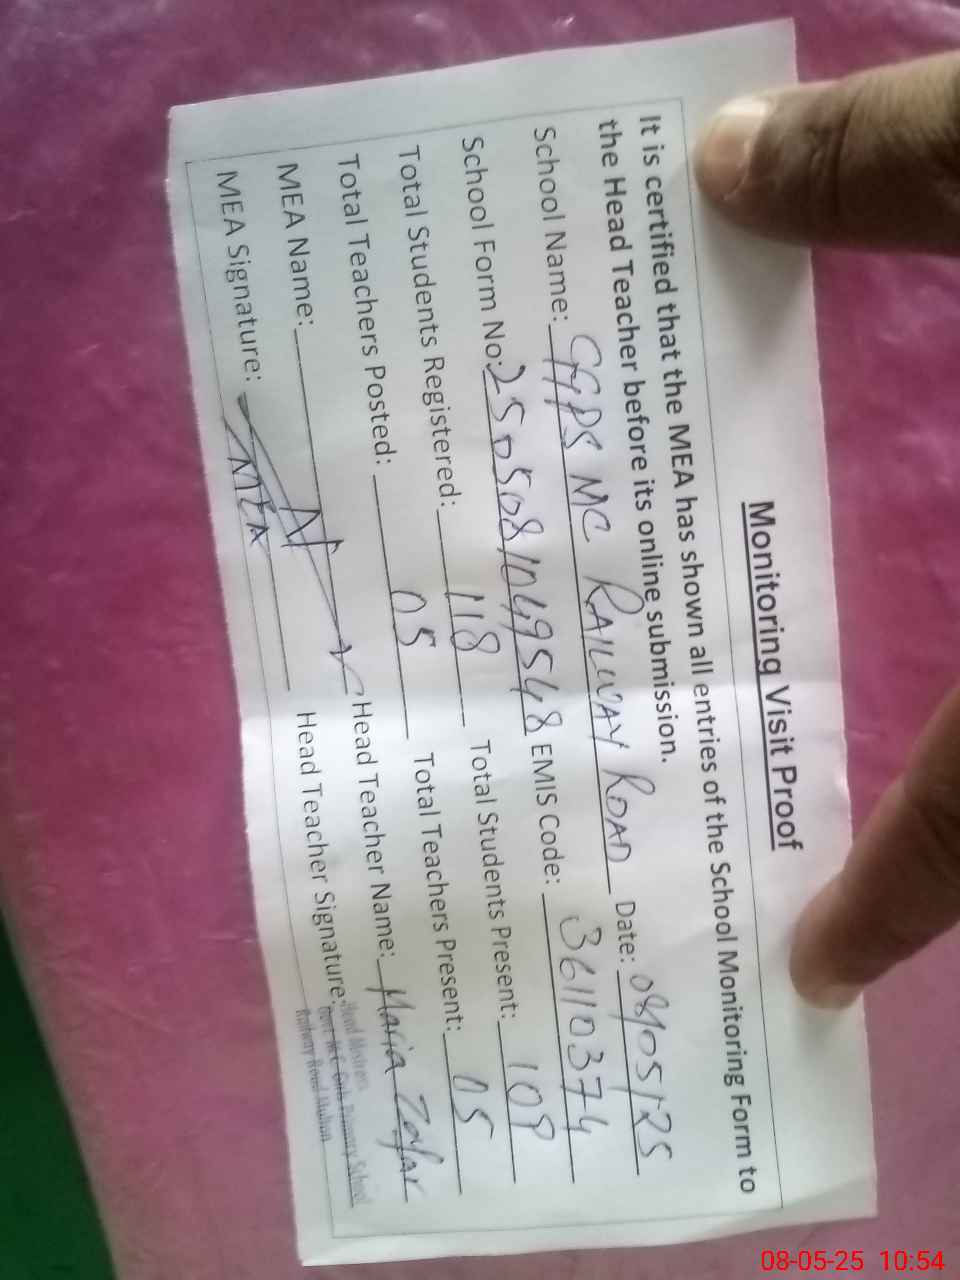 Monitoring Visit Proof
It is certified that the MEA has shown all entries of the School Monitoring Form to
the Head Teacher before its online submission.
School Name: GGPS MC RAILWAY ROAD Date: 08/05/25
School Form No: 2505081049548 EMIS Code: 36110374
Total Students Registered: 118 Total Students Present: 109
Total Teachers Posted: 05 Total Teachers Present: 05
MEA Name: Head Teacher Name: Maria Zafar
MEA Signature: MEA Head Teacher Signature:
Head Mistress
Govt. M.C. Girls Primary School
Railway Road Multan
08-05-25 10:54